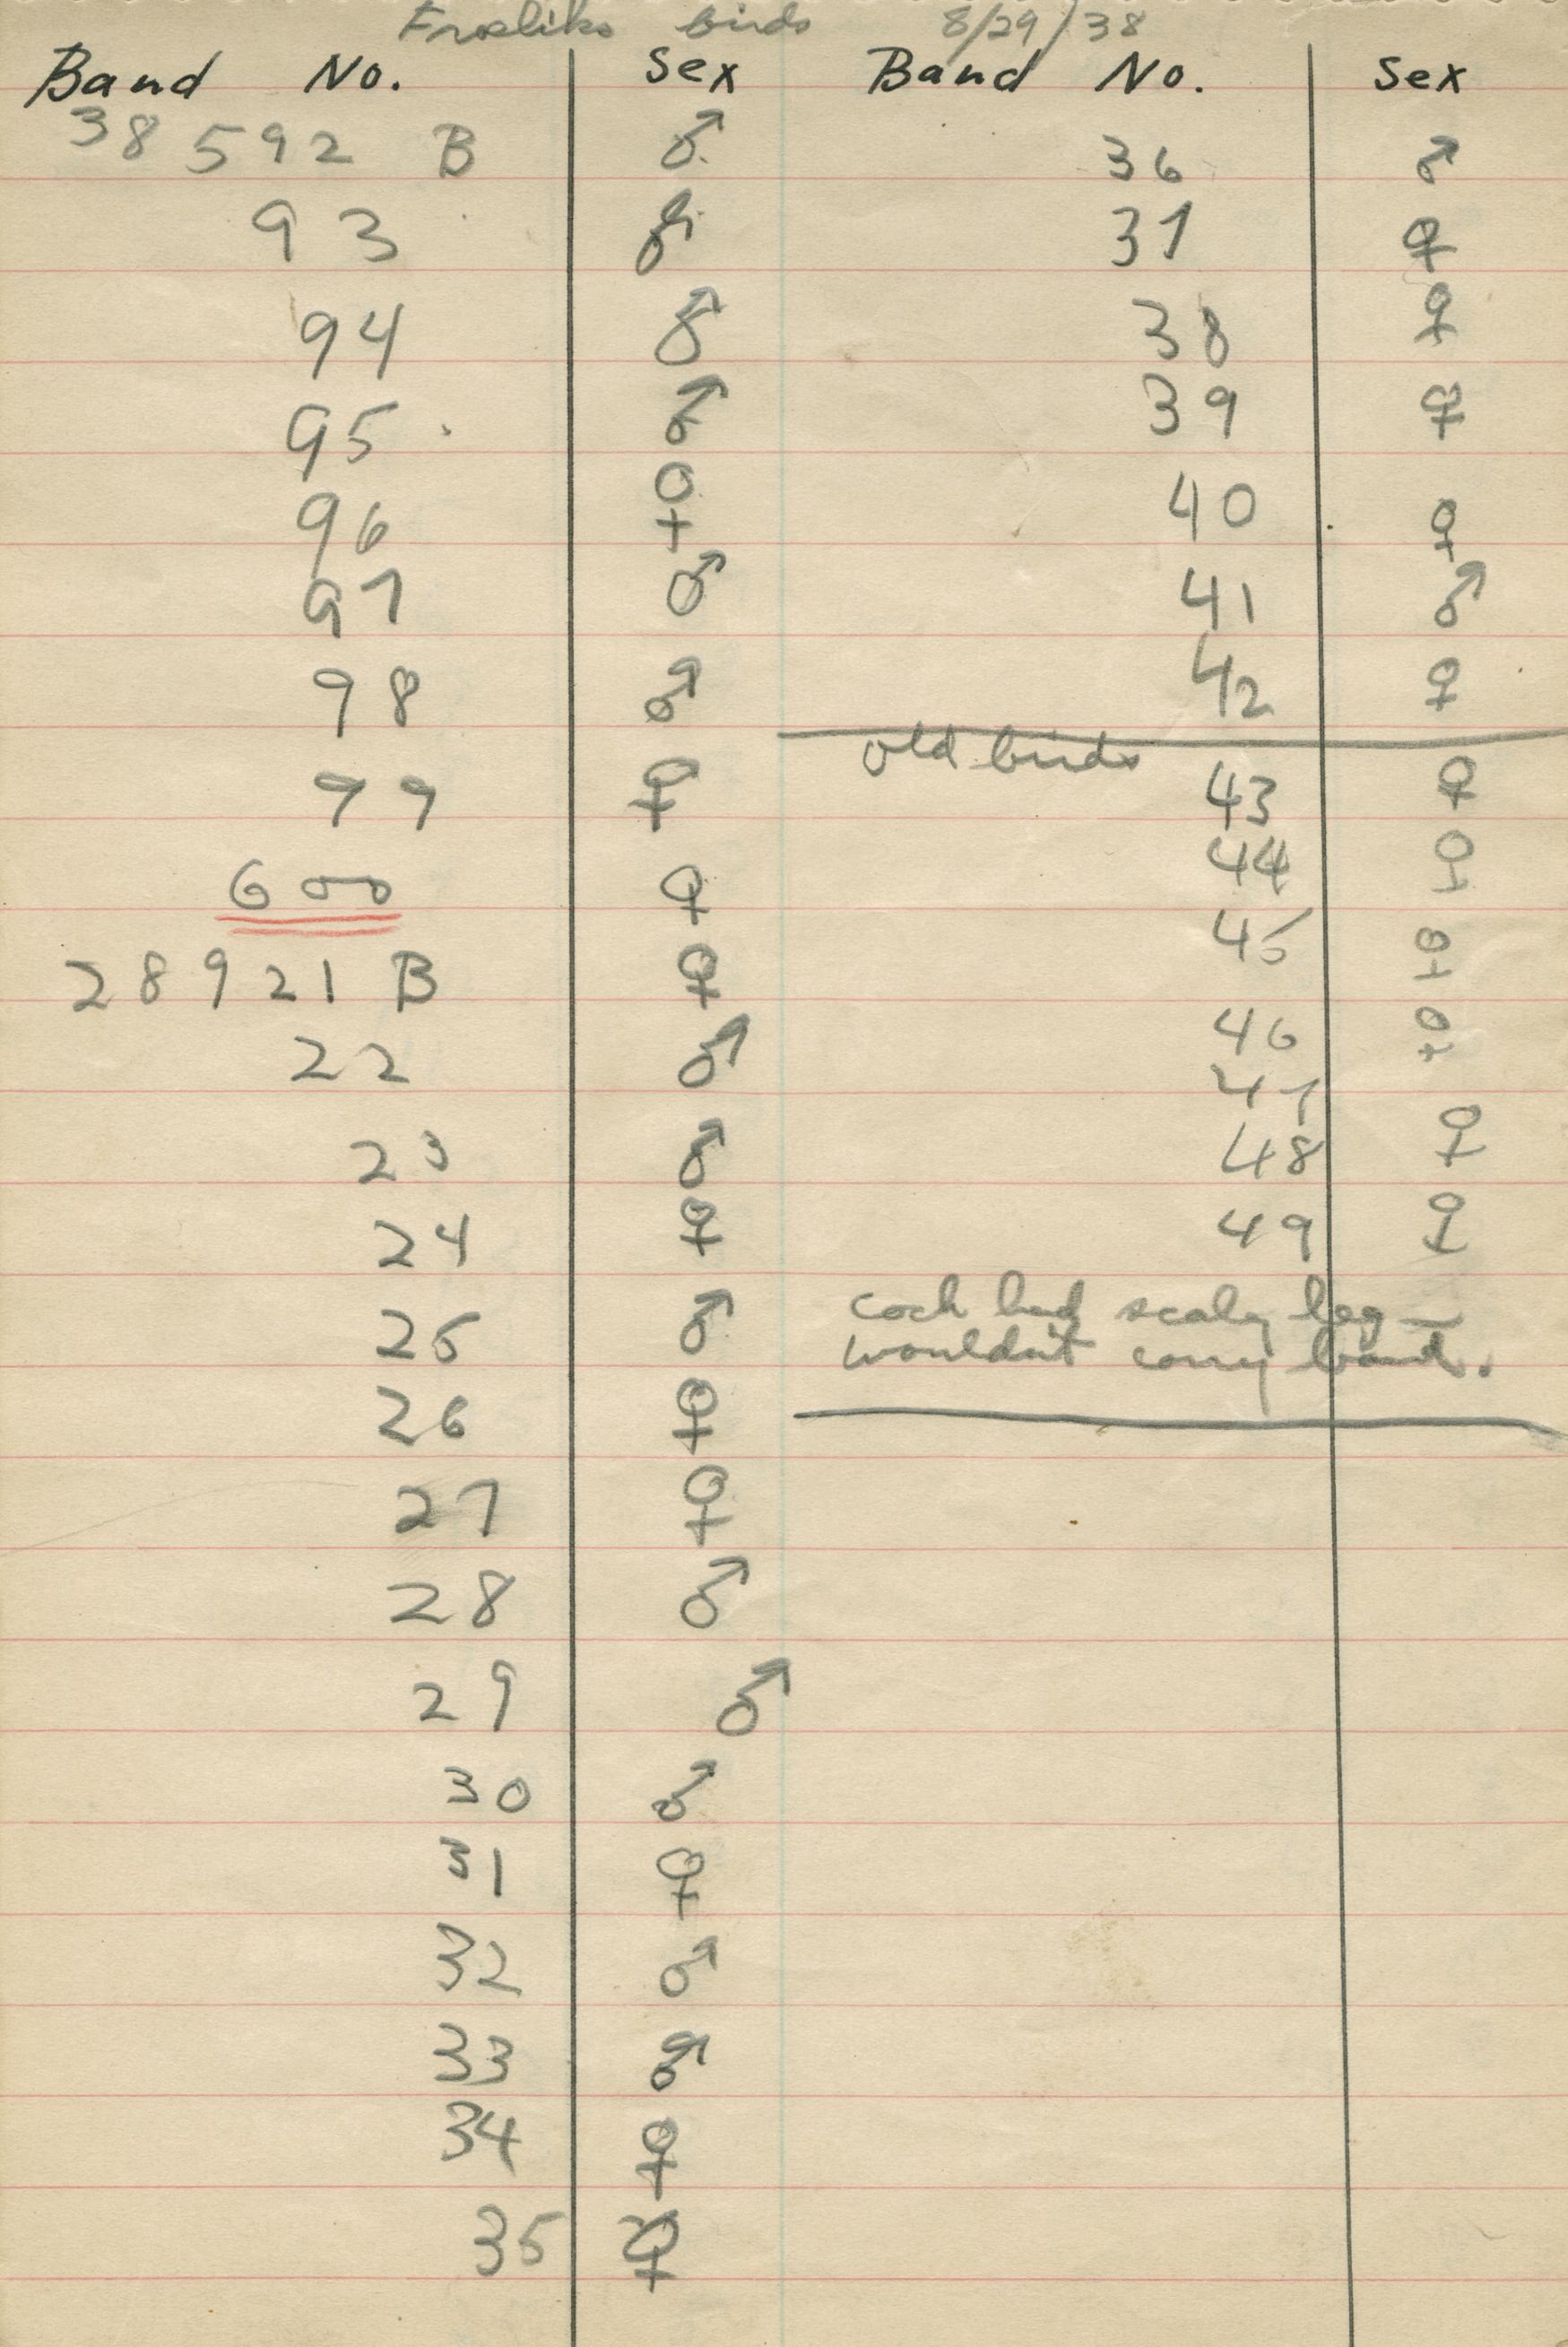 Froeliks birds 8/29/38
Band No. Sex
38592 B ♂
93 ♂
94 ♂
95 ♂
96 ♀
97 ♂
98 ♂
99 ♀
600 ♀
28921 B ♀
22 ♂
23 ♂
24 ♀
25 ♂
26 ♀
27 ♀
28 ♂
29 ♂
30 ♂
31 ♀
32 ♂
33 ♂
34 ♀
35 ♀
Band No. Sex
36 ♂
37 ♀
38 ♀
39 ♀
40 ♀
41 ♂
42 ♀
old birds
43 ♀
44 ♀
45 ♀
46 ♀
47
48 ♀
49 ♀
cock had scaly leg —
wouldn't carry band.